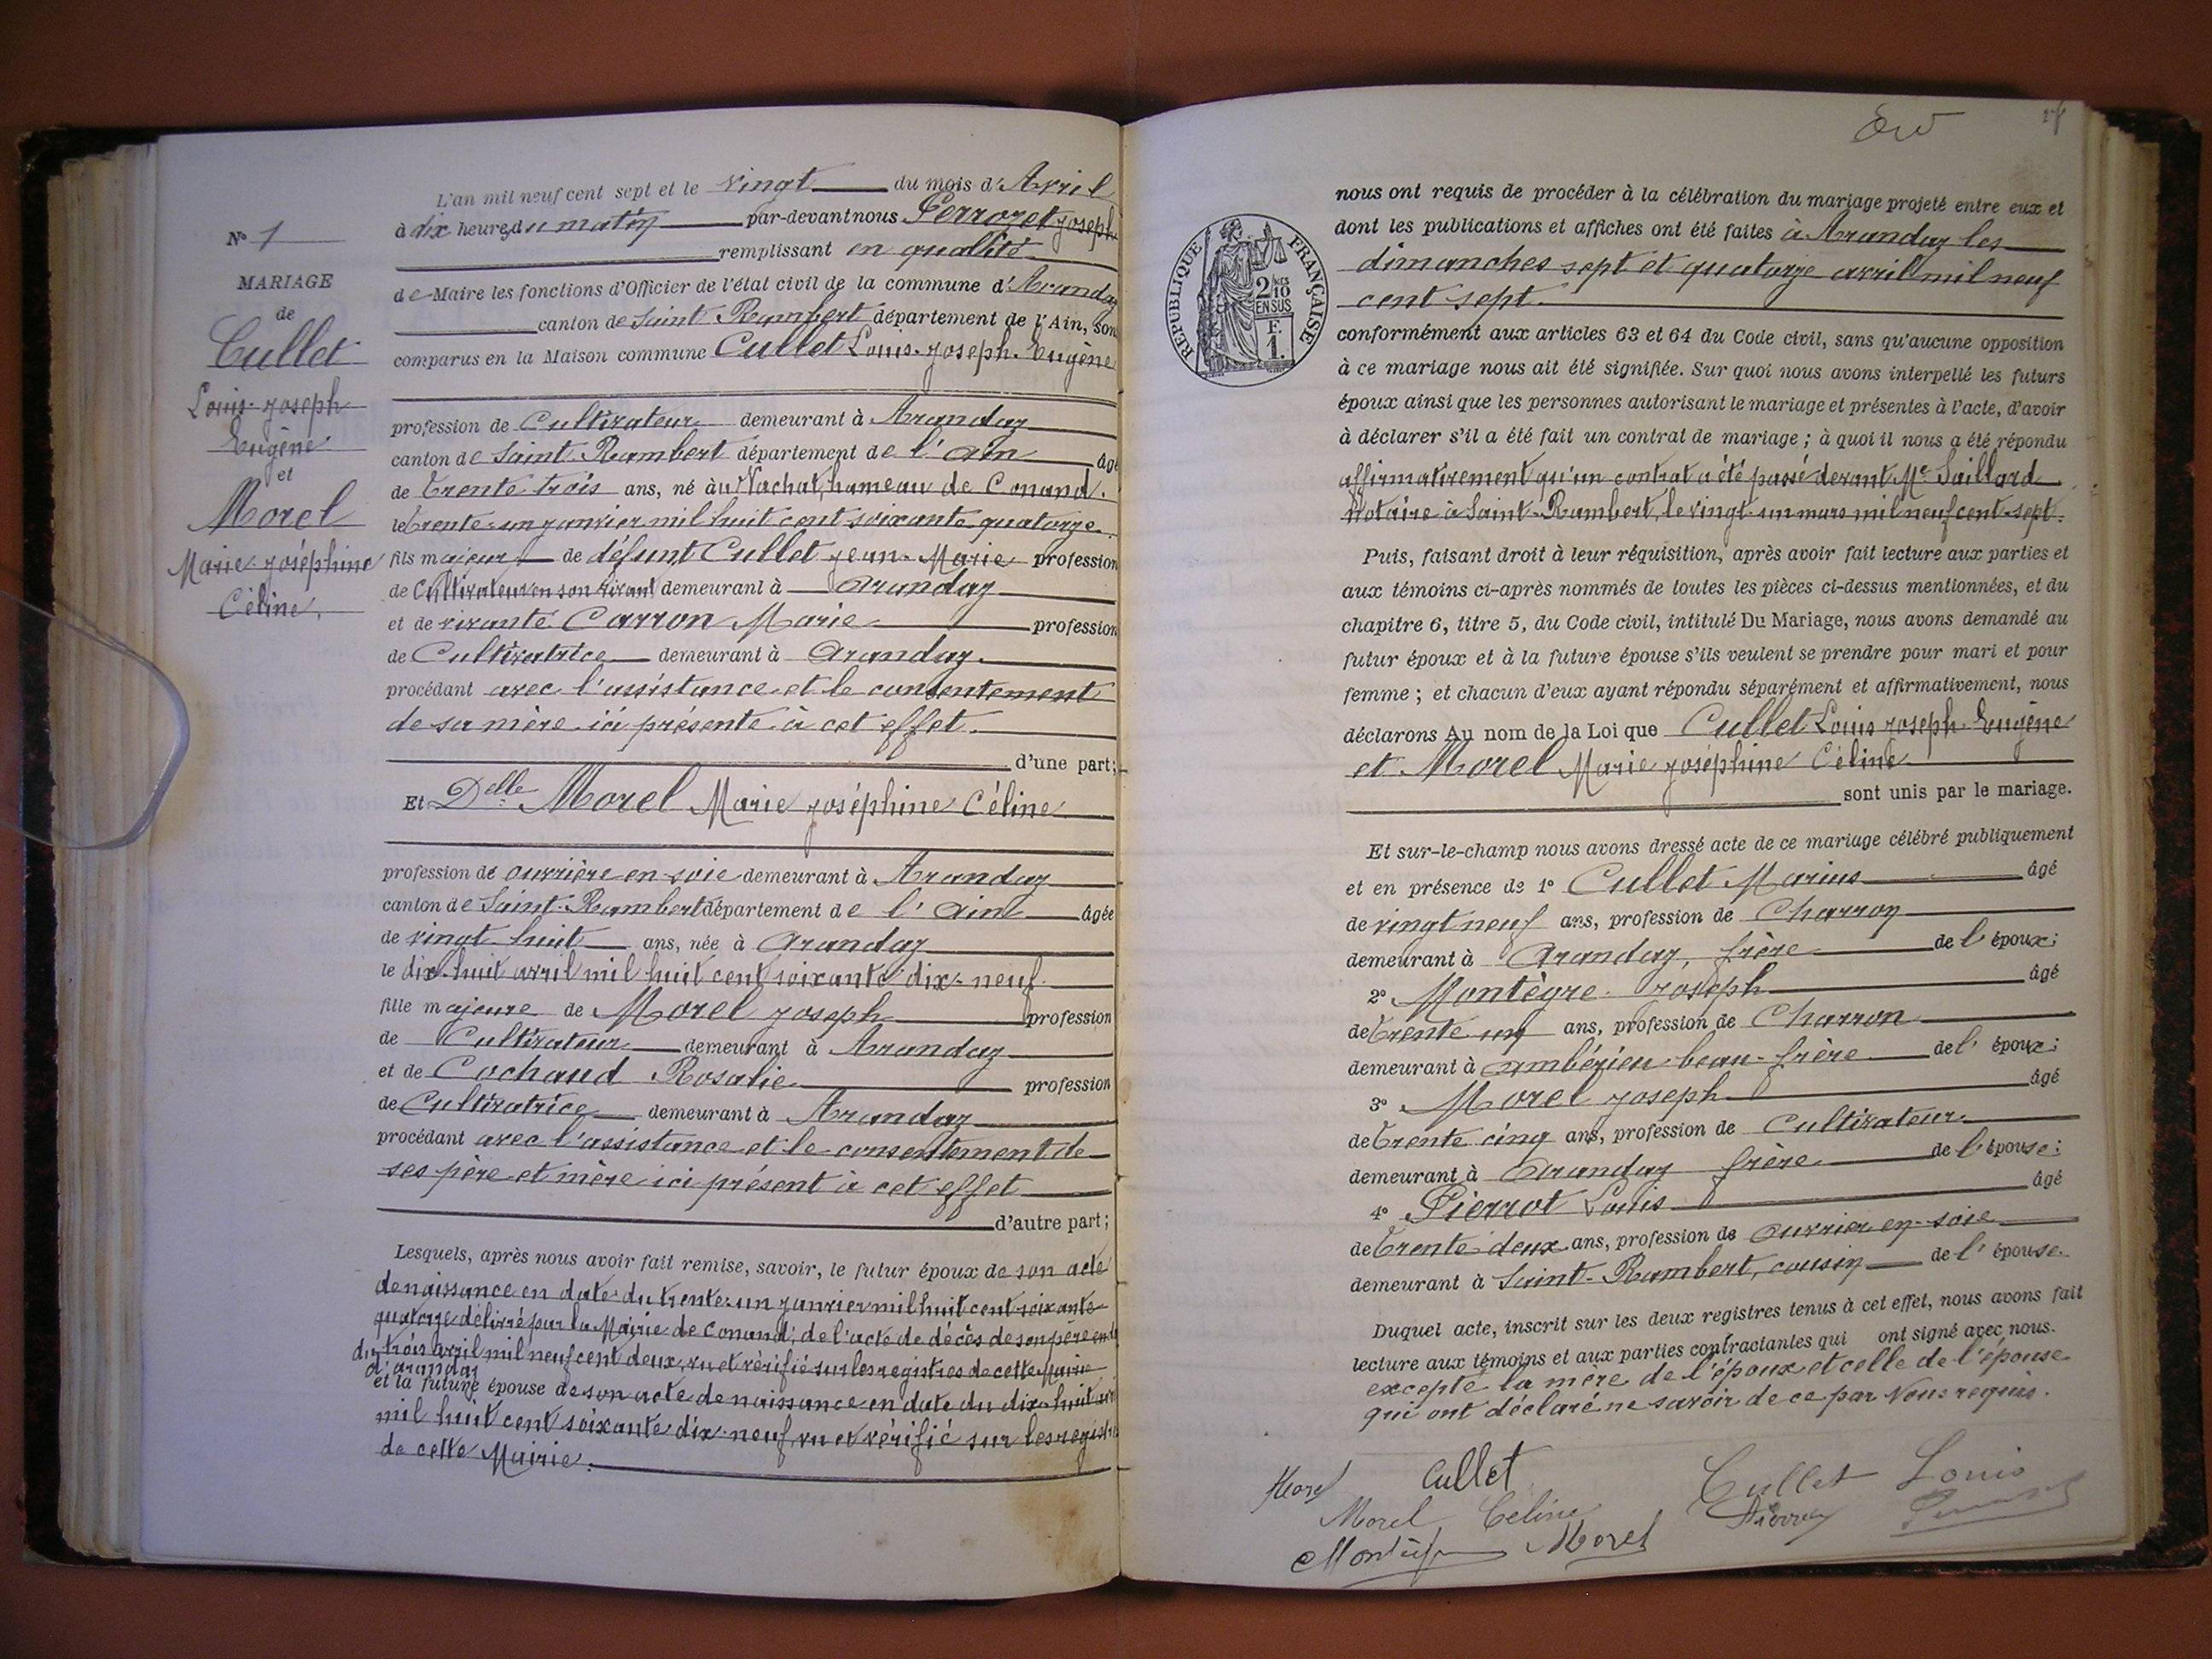 N° 1
MARIAGE
de
Cullet
Louis-Joseph
Eugène
et
Morel
Marie Joséphine
Céline.
L'an mil neuf cent sept et le vingt du mois d'Avril
à dix heures du matin par-devant nous Perrozet Joseph
remplissant en qualité
de Maire les fonctions d'Officier de l'état civil de la commune d'Arandas
canton de Saint Rambert département de l'Ain, son
comparus en la Maison commune Cullet Louis-Joseph-Eugène
profession de Cultivateur demeurant à Arandaz
canton de Saint-Rambert département de l'Ain âgé
de trente trois ans, né au Vachat, hameau de Conand.
le trente-un janvier mil huit cent soixante quatorze.
fils majeur de défunt Cullet Jean-Marie profession
de Cultivateur en son vivant demeurant à Arandaz
et de vivante Carron Marie profession
de Cultivatrice demeurant à Arandaz.
procédant avec l'assistance et le consentement
de sa mère ici présente à cet effet.
d'une part;
Et Delle Morel Marie Joséphine Céline
profession de ouvrière en soie demeurant à Arandaz
canton de Saint-Rambert département de l'Ain âgée
de vingt-huit ans, née à Arandaz
le dix-huit avril mil huit cent soixante dix-neuf.
fille majeure de Morel Joseph profession
de Cultivateur demeurant à Arandaz
et de Cochaud Rosalie profession
de Cultivatrice demeurant à Arandaz
procédant avec l'assistance et le consentement de
ses père et mère ici présent à cet effet
d'autre part;
Lesquels, après nous avoir fait remise, savoir, le futur époux de son acte
de naissance en date du trente-un janvier mil huit cent soixante
quatorze délivré par la Mairie de Conand; de l'acte de décès de son père en
du trois avril mil neuf cent deux, vu et vérifié sur les registres de cette Mairie
d'arandaz
et la future épouse de son acte de naissance en date du dix-huit
mil huit cent soixante dix-neuf, vu et vérifié sur les registres
de cette Mairie.
RÉPUBLIQUE FRANÇAISE
2/10 EN SUS
F. 1.
nous ont requis de procéder à la célébration du mariage projeté entre eux et
dont les publications et affiches ont été faites à Arandaz les
dimanches sept et quatorze avril mil neuf
cent sept.
conformément aux articles 63 et 64 du Code civil, sans qu'aucune opposition
à ce mariage nous ait été signifiée. Sur quoi nous avons interpellé les futurs
époux ainsi que les personnes autorisant le mariage et présentes à l'acte, d'avoir
à déclarer s'il a été fait un contrat de mariage; à quoi il nous a été répondu
affirmativement qu'un contrat a été passé devant Me Saillard
Notaire à Saint-Rambert, le vingt-un mars mil neuf cent sept.
Puis, faisant droit à leur réquisition, après avoir fait lecture aux parties et
aux témoins ci-après nommés de toutes les pièces ci-dessus mentionnées, et du
chapitre 6, titre 5, du Code civil, intitulé Du Mariage, nous avons demandé au
futur époux et à la future épouse s'ils veulent se prendre pour mari et pour
femme; et chacun d'eux ayant répondu séparément et affirmativement, nous
déclarons Au nom de la Loi que Cullet Louis Joseph Eugène
et Morel Marie Joséphine Céline
sont unis par le mariage.
Et sur-le-champ nous avons dressé acte de ce mariage célébré publiquement
et en présence de 1° Cullet Marius âgé
de vingt neuf ans, profession de Charron
demeurant à Arandaz, frère de l'époux;
2° Montègre Joseph âgé
de trente un ans, profession de Charron
demeurant à Ambérieu beau-frère de l'époux;
3° Morel Joseph âgé
de trente cinq ans, profession de Cultivateur
demeurant à Arandaz frère de l'épouse;
4° Pierrot Louis âgé
de trente deux ans, profession de ouvrier en soie
demeurant à Saint-Rambert, cousin de l'épouse
Duquel acte, inscrit sur les deux registres tenus à cet effet, nous avons fait
lecture aux témoins et aux parties contractantes qui ont signé avec nous.
excepté la mère de l'époux et celle de l'épouse
qui ont déclaré ne savoir de ce par Nous requis.
Morel Cullet Cullet Louis
Morel Celine
Morel